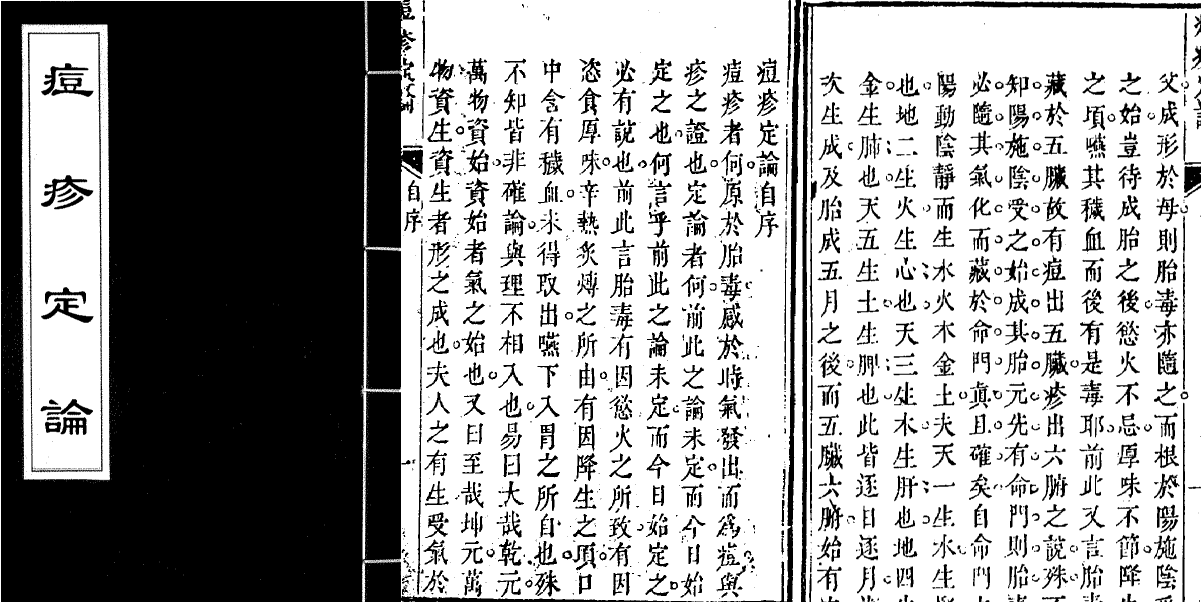 痘疹定論
痘疹定論自序
痘疹者何原於胎毒感於時氣發出而為痘與
疹之證也定論者何前此之論未定而今日始
定之也何言乎前此之論未定而今日始定之
必有說也前此言胎毒有因慾火之所致有因
恣食厚味辛熱炙煿之所由有因降生之頃口
中含有穢血未得取出嚥下入胃之所自也殊
不知皆非確論與理不相入也易曰大哉乾元
萬物資始資始者氣之始也又曰至哉坤元萬
物資生資生者形之成也夫人之有生受氣於
自序
一
父成形於母則胎毒亦隨之而根於陽施陰
之始豈待成胎之後慾火不忌厚味不節降
之頃嚥其穢血而後有是毒耶前此又言胎
藏於五臟故有痘出五臟疹出六腑之說殊
知陽施陰受之始成其胎元先有命門則胎
必隨其氣化而藏於命門真且確矣自命門
陽動陰靜而生水火木金土夫天一生水生
也地二生火生心也天三生木生肝也地四
金生肺也天五生土生脾也此皆逐日逐月
次生成及胎成五月之後而五臟六腑始有